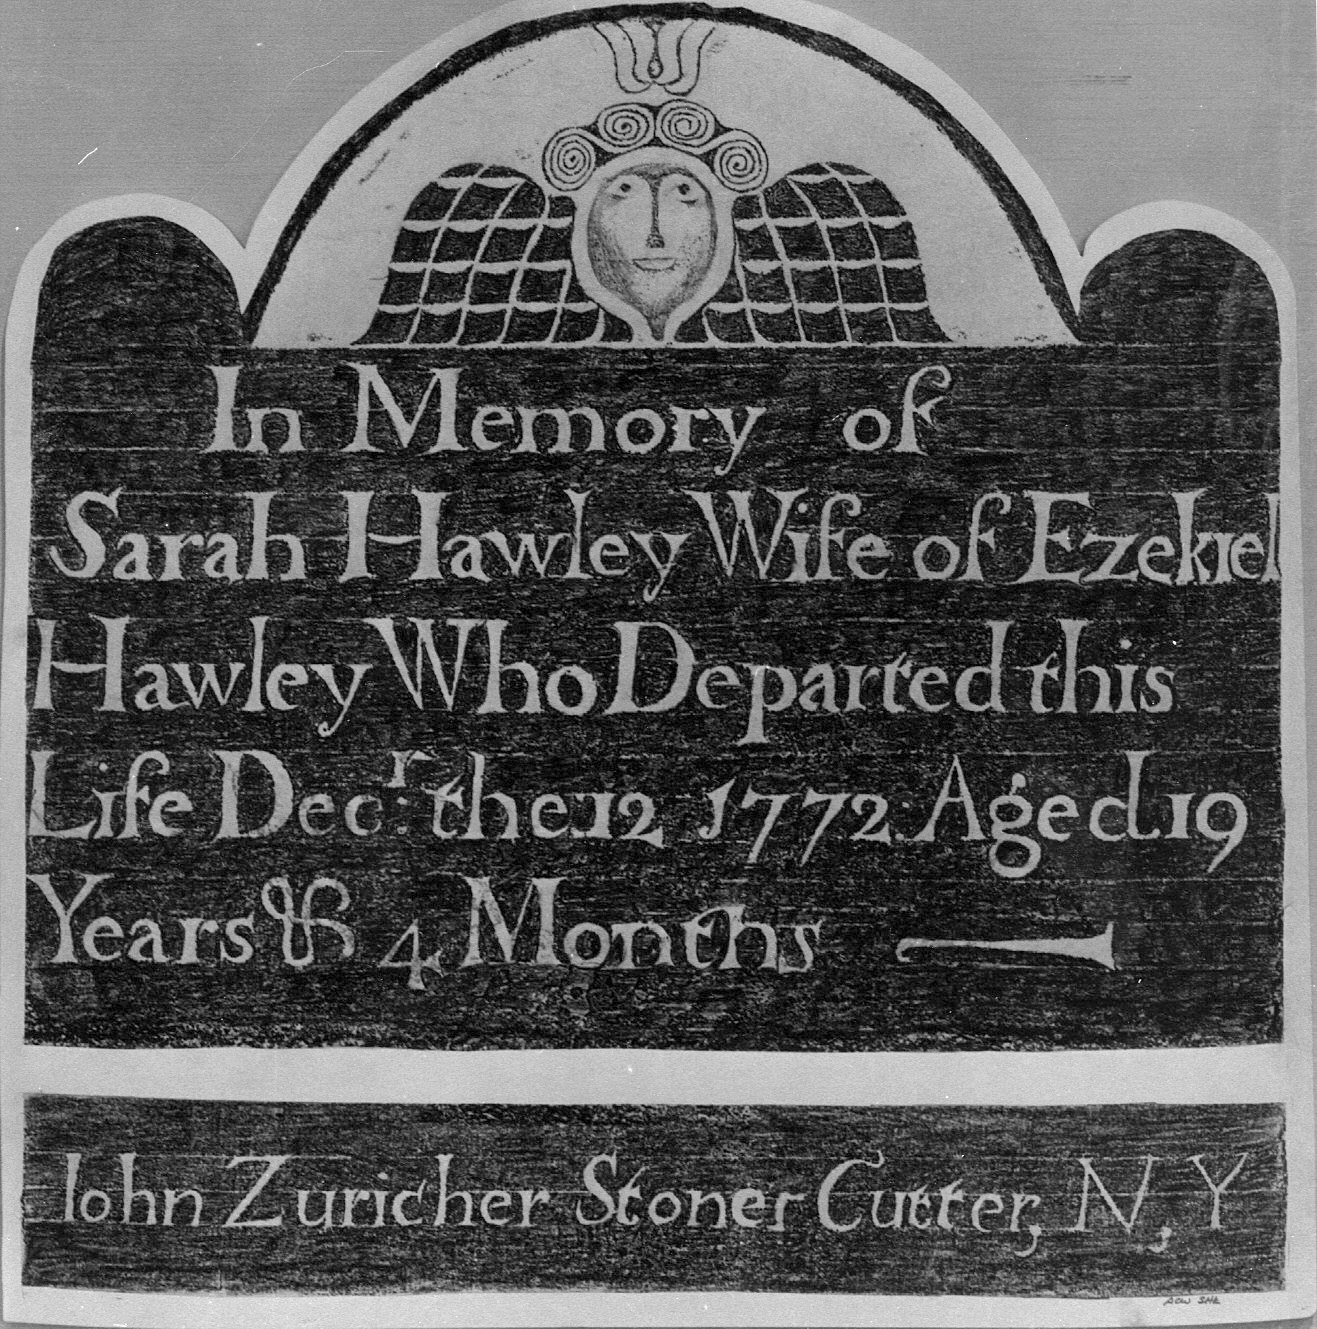 In Memory of
Sarah Hawley Wife of Ezekiel
Hawley Who Departed this
Life Decr: the 12 1772 Aged 19
Years & 4 Months
Iohn Zuricher Stoner Cutter, N, Y